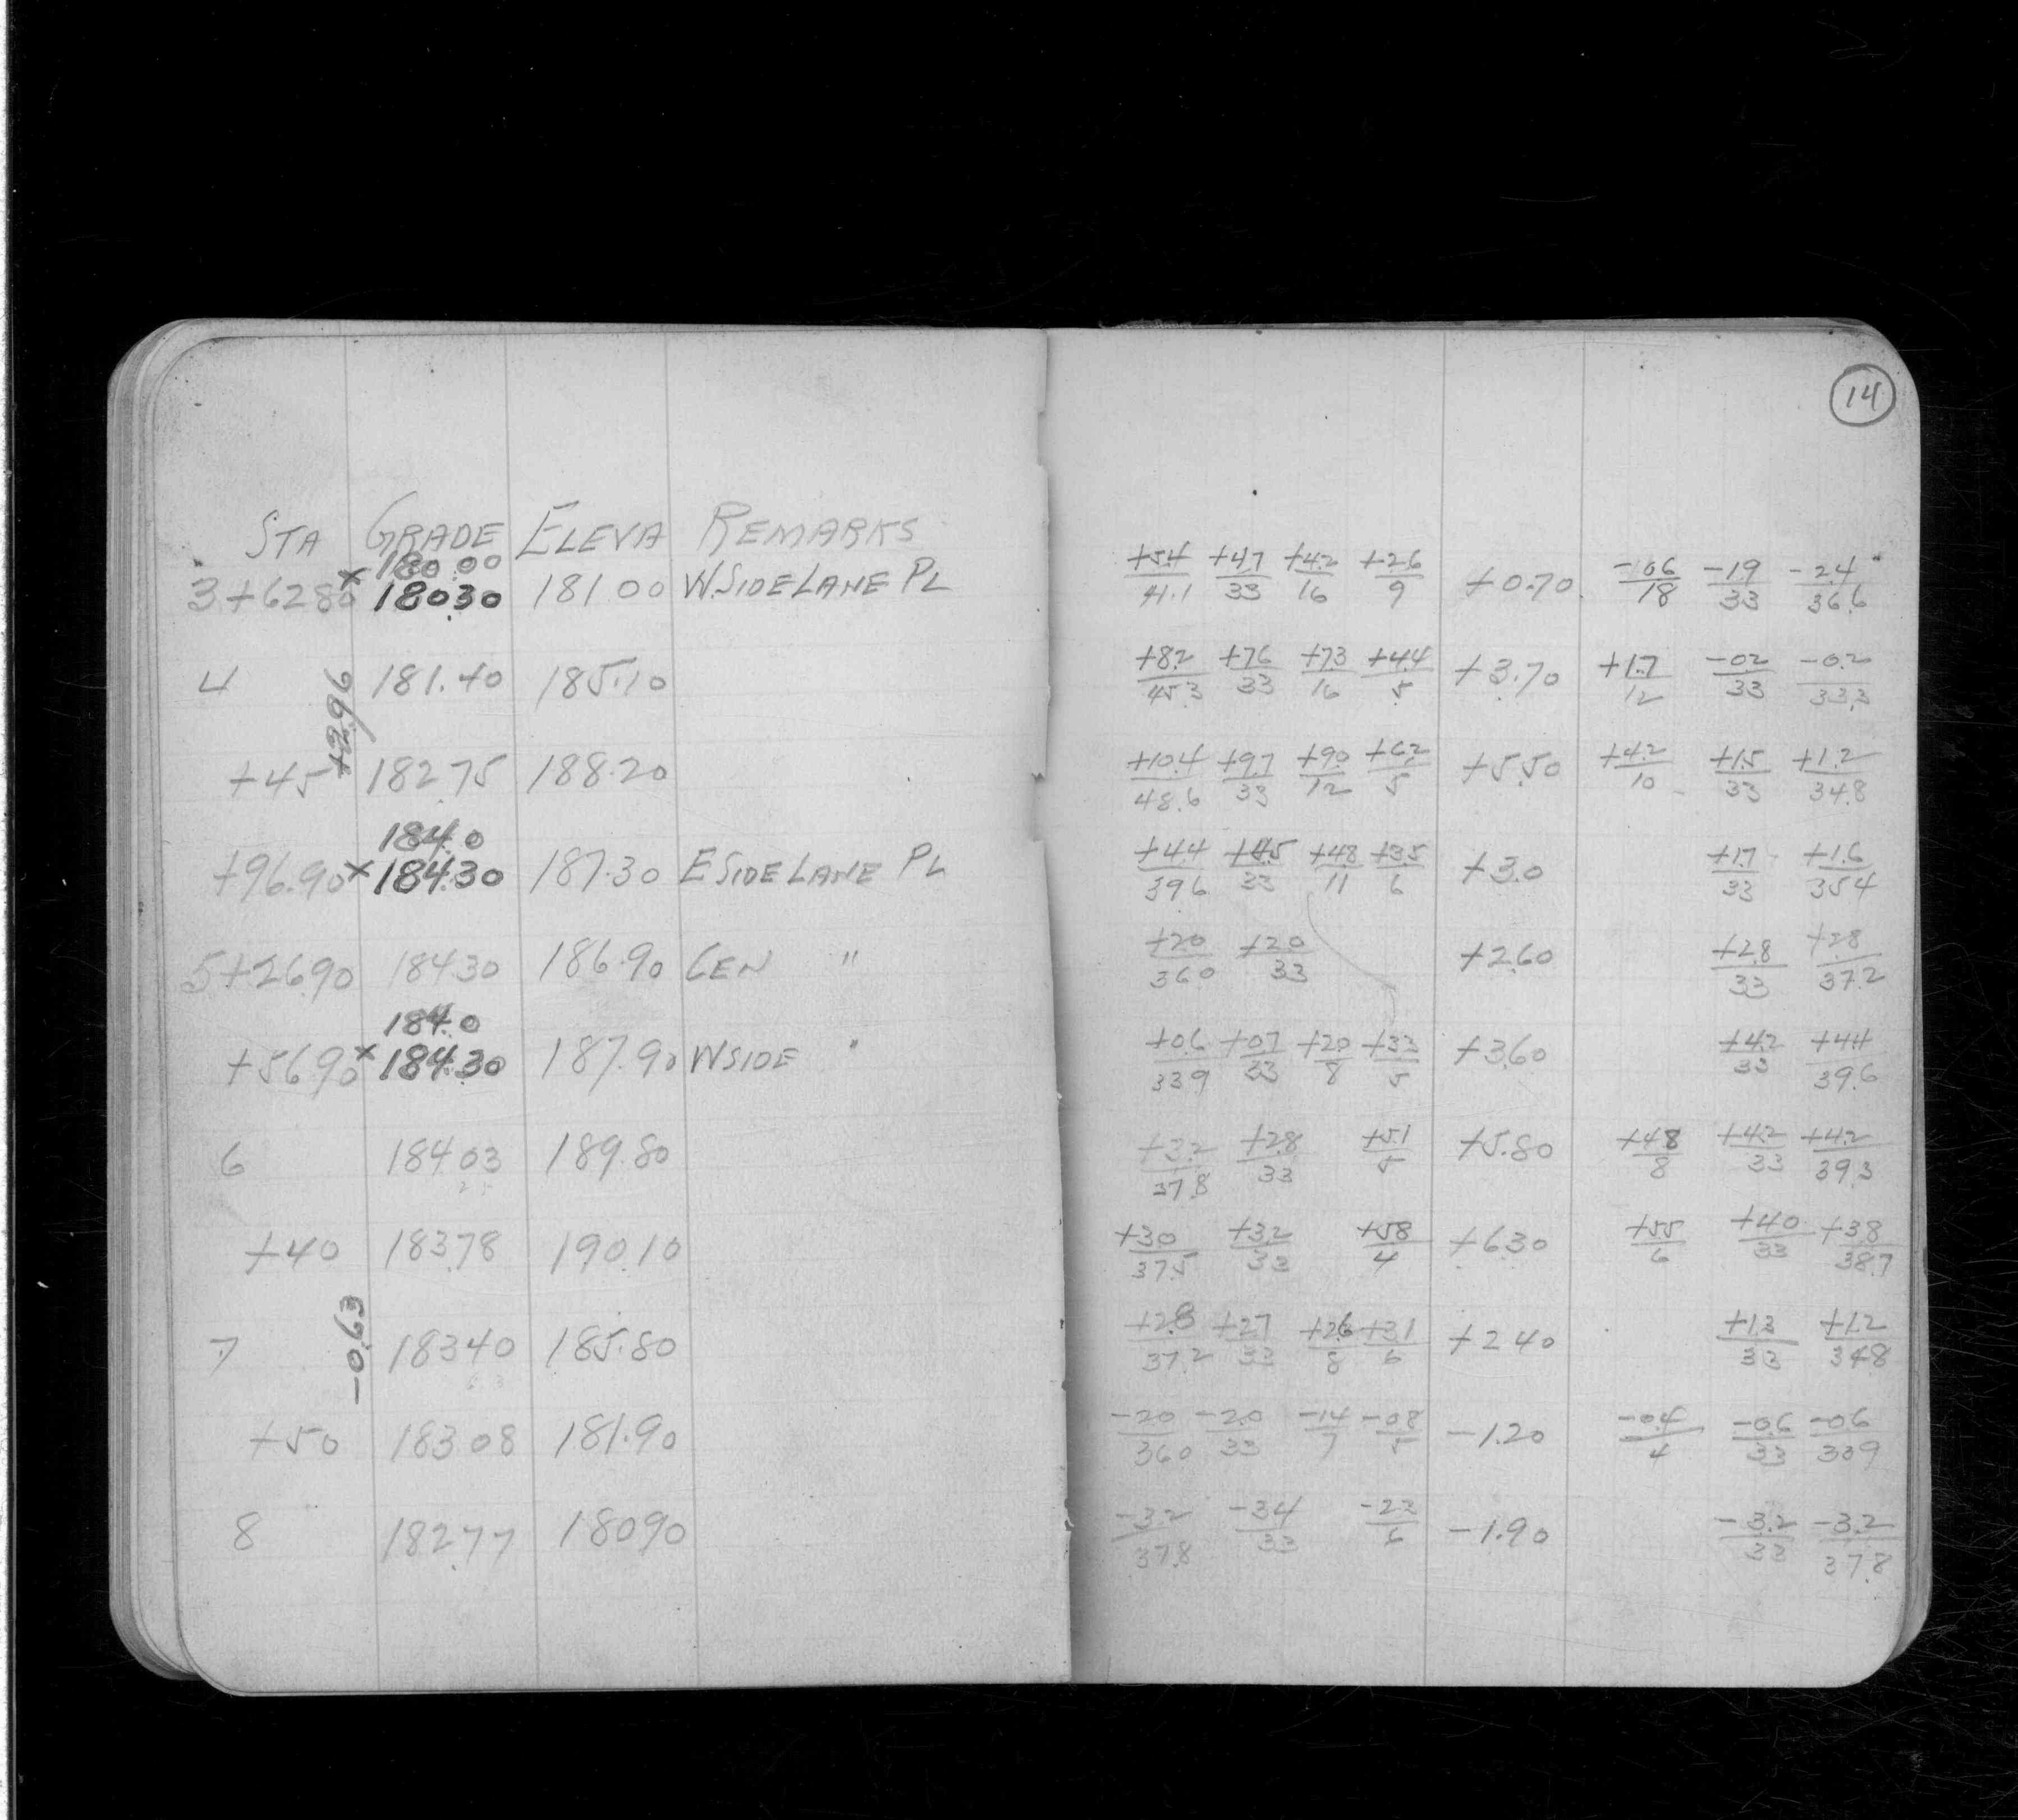 14
STA GRADE ELEVA REMARKS
180.00
3+62.80 × 180.30 181.00 W.SIDE LANE PL +5.4/41.1 +4.7/33 +4.2/16 +2.6/9 +0.70 -1.06/18 -1.9/33 -2.4/36.6
4 181.40 185.10 +8.2/45.3 +7.6/33 +7.3/16 +4.4/5 +3.70 +1.7/12 -0.2/33 -0.2/33.3
+2.96
+45 182.75 188.20 +10.4/48.6 +9.7/33 +9.0/12 +6.2/5 +5.50 +4.2/10 +1.5/33 +1.2/34.8
184.0
+96.90 × 184.30 187.30 E SIDE LANE PL +4.4/39.6 +4.5/33 +4.8/11 +3.5/6 +3.0 +1.7/33 +1.6/35.4
5+26.90 184.30 186.90 CEN " +2.0/36.0 +2.0/33 +2.60 +2.8/33 +2.8/37.2
184.0
+56.90 × 184.30 187.90 W SIDE " +0.6/33.9 +0.7/33 +2.0/8 +3.3/5 +3.60 +4.2/33 +4.4/39.6
6 184.03 189.80 +3.2/37.8 +2.8/33 +5.1/5 +5.80 +4.8/8 +4.2/33 +4.2/39.3
+40 183.78 190.10 +3.0/37.5 +3.2/33 +5.8/4 +6.30 +5.5/6 +4.0/33 +3.8/38.7
-0.63
7 183.40 185.80 +2.8/37.2 +2.7/33 +2.6/8 +3.1/6 +2.40 +1.3/33 +1.2/34.8
+50 183.08 181.90 -2.0/36.0 -2.0/33 -1.4/7 -0.8/5 -1.20 -0.4/4 -0.6/33 -0.6/33.9
8 182.77 180.90 -3.2/37.8 -3.4/33 -2.3/6 -1.90 -3.2/33 -3.2/37.8